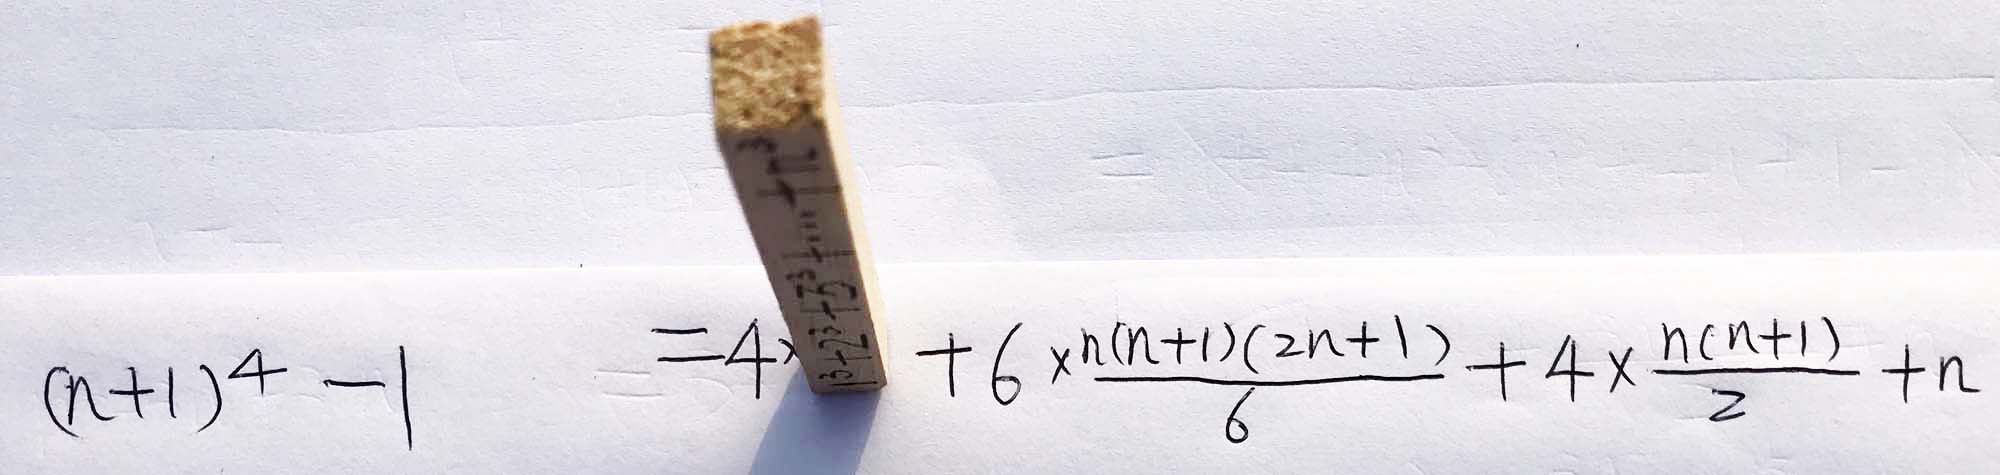 (n+1)⁴ - 1 = 4× 1³+2³+3³+...+n³ + 6 × n(n+1)(2n+1)/6 + 4 × n(n+1)/2 + n